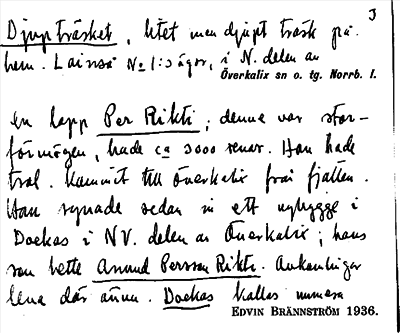 J
Djupträsket, litet men djupt träsk på
hem. Lainså No 1:s ägor, i N. delen av
Överkalix sn o. tg. Norrb. l.
en lapp Per Rikti; denne var stor-
förmögen, hade ca 3000 renar. Han hade
trol. kommit till Överkalix från fjällen.
Han synade sedan in ett nybygge i
Dockas i NV. delen av Överkalix; hans
son hette Amund Persson Rikti. Ankomlingar
leva där ännu. Dockas kallas numera
EDVIN BRÄNNSTRÖM 1936.